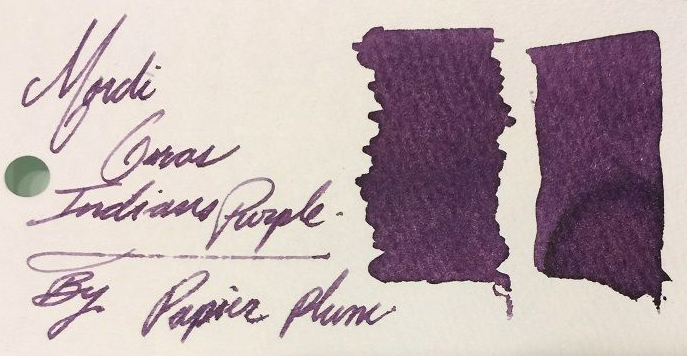 Mardi
Gras
Indians Purple.
By Papier Plume